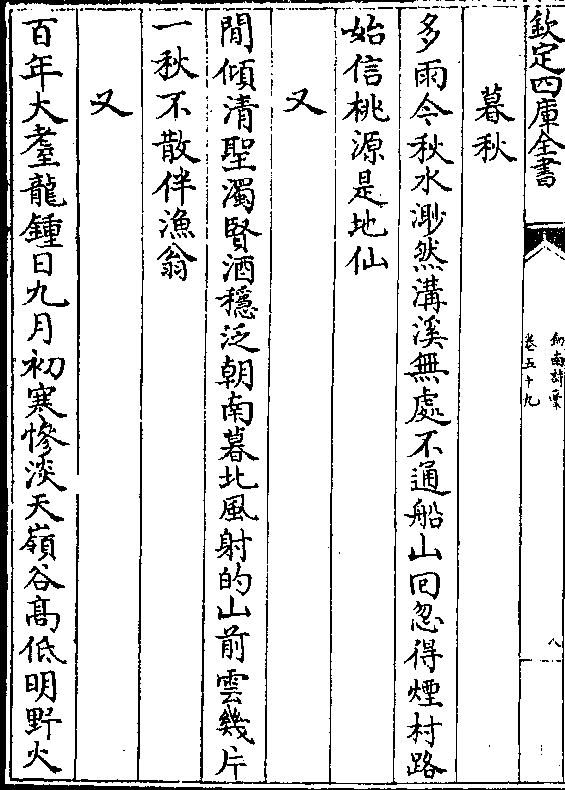 欽定四庫全書
劍南詩稾
卷五十九
八
暮秋
多雨今秋水渺然溝溪無處不通船山回忽得煙村路
始信桃源是地仙
又
閒傾清聖濁賢酒穩泛朝南暮北風射的山前雲幾片
一秋不散伴漁翁
又
百年大耋龍鍾日九月初寒慘淡天嶺谷髙低明野火